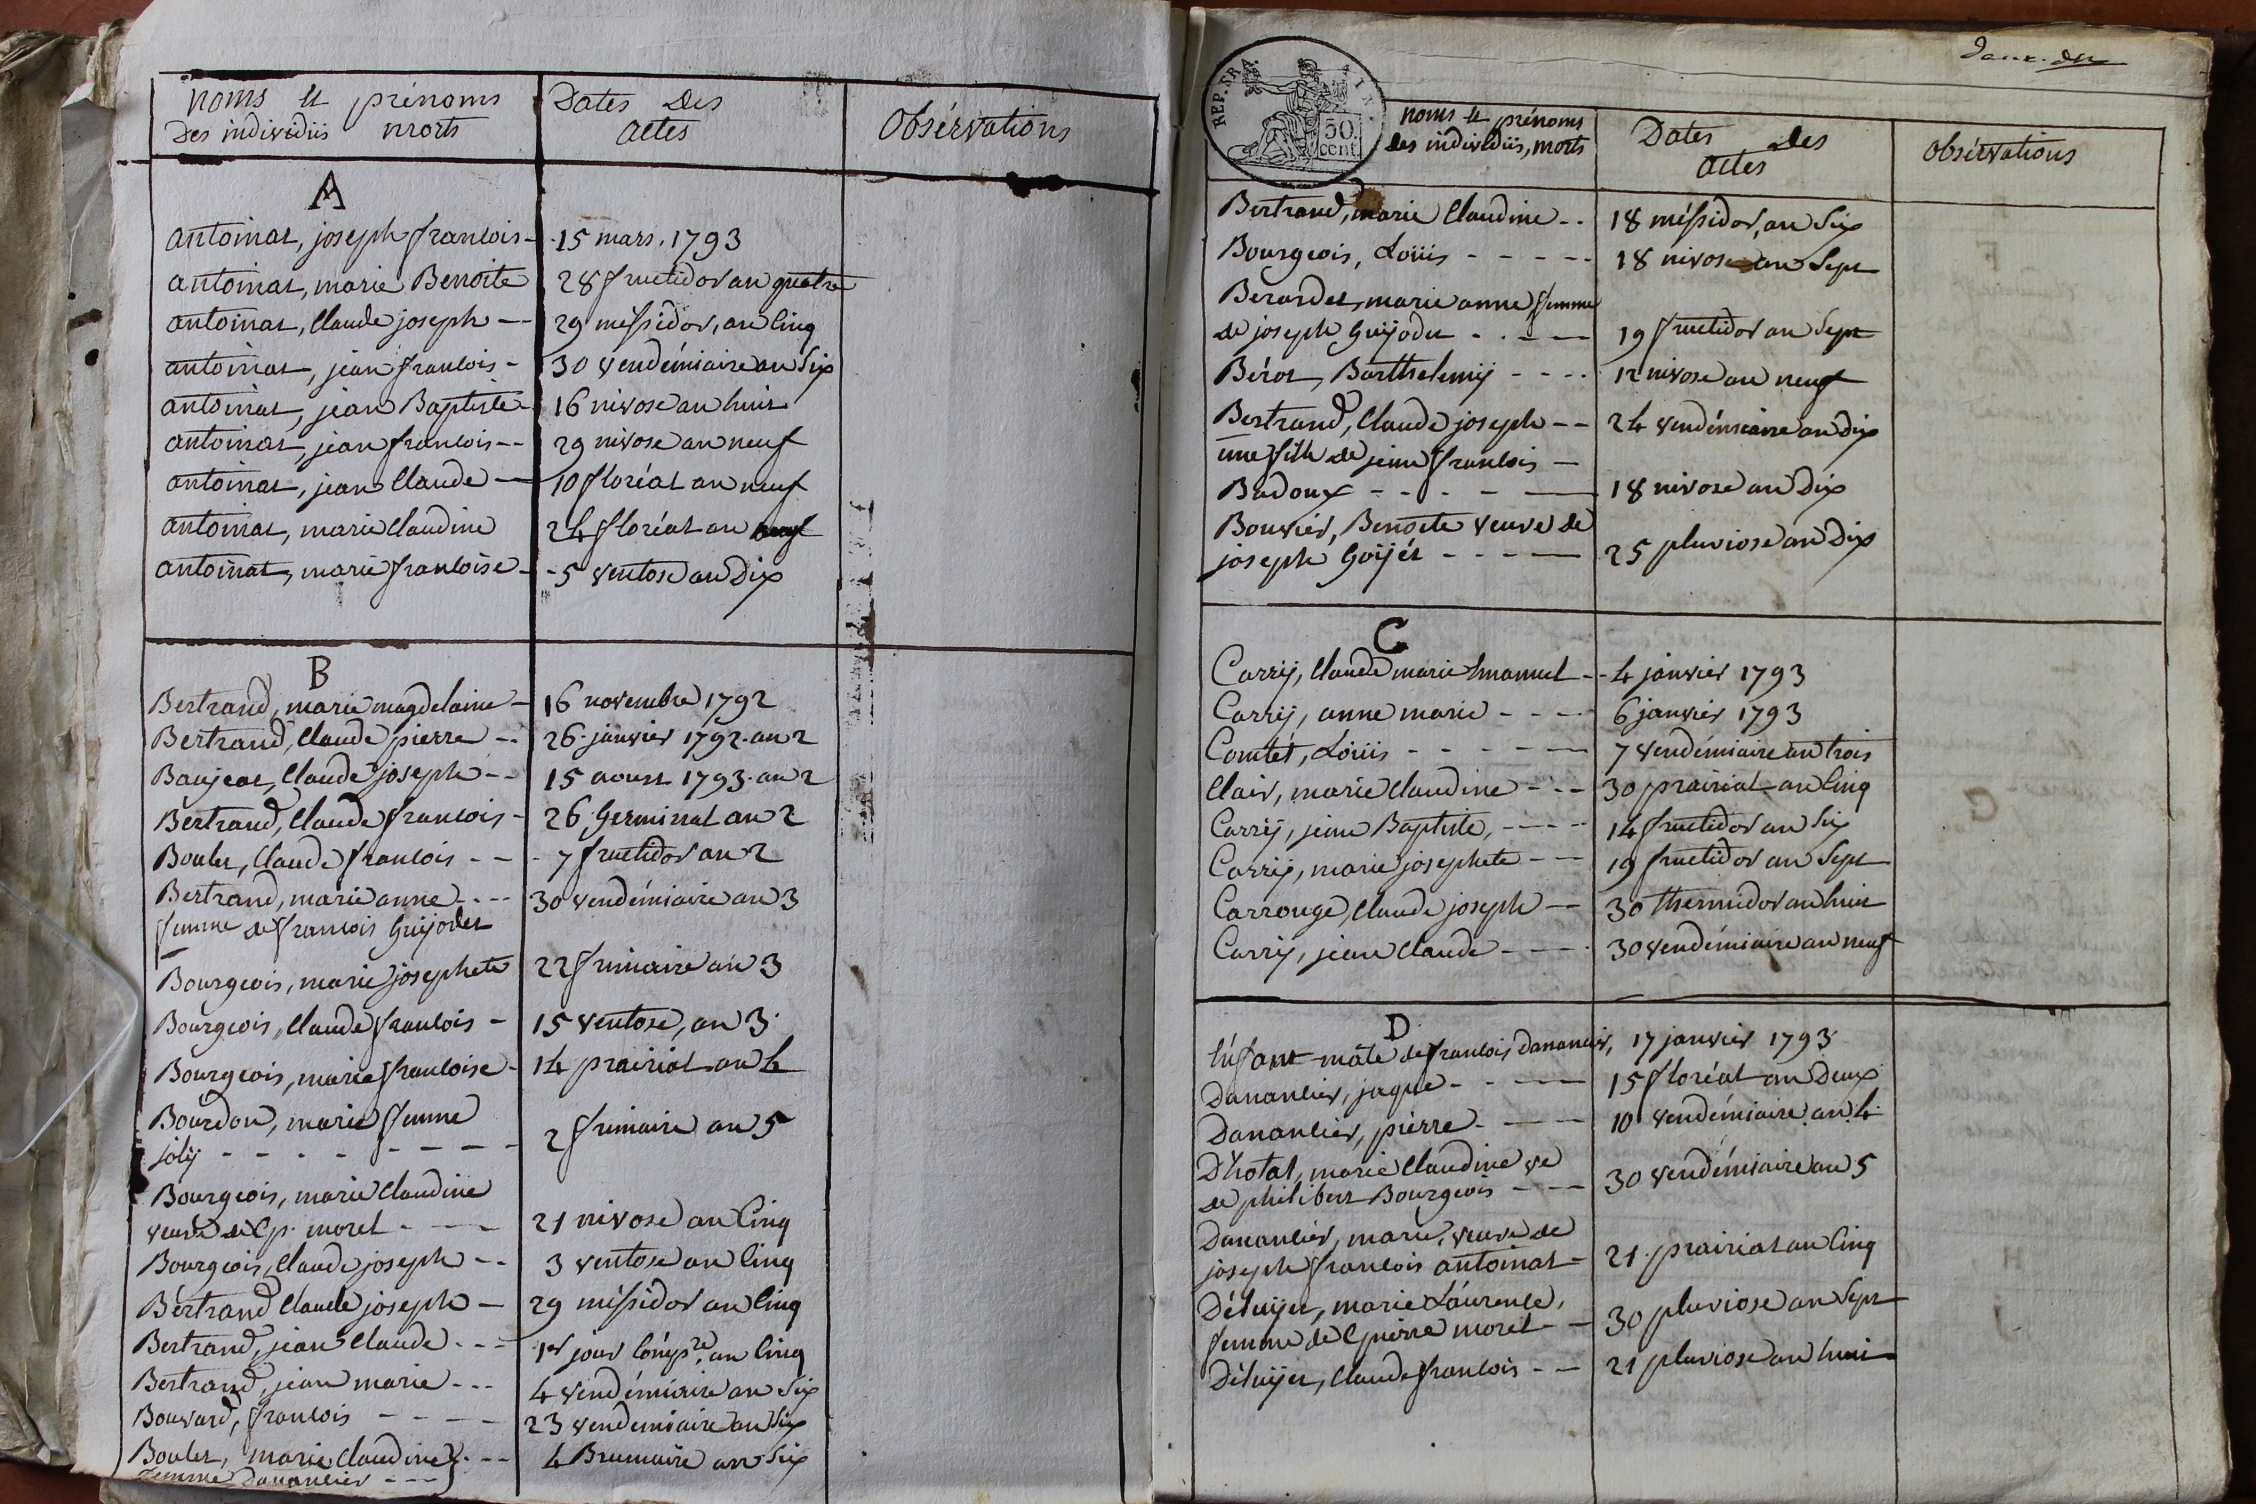 noms et prénoms
Des individüs morts
Dates Des
actes
Observations
A
antoinat, joseph francois - 15 mars. 1793
antoinat, marie Benoite 28 fructidor an quatre
antoinat, Claude joseph -- 29 messidor, an Cinq
antoinat, jean francois - 30 vendémiaire an Six
antoinat, jean Baptiste - 16 nivose an huit
antoinat, jean francois -- 29 nivose an neuf
antoinat, jean Claude -- 10 floréal an neuf
antoinat, marie Claudine 24 floréal an neuf
antoinat, marie francoise - - 5 ventose an Dix
B
Bertrand, marie magdelaine - 16 novembre 1792
Bertrand, Claude pierre -- 26 janvier 1792. an 2
Baujeat, Claude joseph -- 15 aoust 1793. an 2
Bertrand, Claude francois - 26 Germinal an 2
Boulet, Claude francois -- - 7 fructidor an 2
Bertrand, marie anne ---- 30 vendémiaire an 3
femme de francois Guÿodet
Bourgeois, marie josephete 22 frimaire an 3
Bourgeois, Claude francois - 15 ventose, an 3.
Bourgeois, marie francoise - 14 prairial an 4
Bourdon, marie femme
jolÿ - - - - - - - 2 frimaire an 5
Bourgeois, marie Claudine
veuve de Cp. morel - - - 21 nivose an Cinq
Bourgeois, Claude joseph -- 3 ventose an Cinq
Bértrand Claude joseph - 29 messidor an Cinq
Bertrand, jean Claude --- 1er jour Comp.re an Cinq
Bertrand, jean marie --- 4 vendémiaire an Six
Bouvard, francois - - - - 23 vendemiaire an Six
Boulet, marie Claudine } --- 4 Brumaire an Six
femme Danancier ---
REP. FRA.
50
cent.
noms et prénoms
des individüs, morts
Dates des
actes
Observations
Bertrand, marie Claudine -- 18 messidor, an Six
Bourgeois, Loüis - - - - - 18 nivose an Sept
Berardet, marie anne femme
de joseph Guÿodet - - - - 19 fructidor an Sept
Bérot, Barthelemÿ - - - - 12 nivose an neuf
Bertrand, Claude joseph -- 24 vendémiaire an Dix
une fille de jean francois -
Badoux - - - - - 18 nivose an Dix
Bouvier, Benoite veuve de
joseph Goÿét - - - - 25 pluviose an Dix
C
Carrÿ, Claude marie Emanuel -- 4 janvier 1793
Carrÿ, anne marie - - - - 6 janvier 1793
Comtét, Loüis - - - - - 7 vendémiaire an trois
Clair, marie Claudine - - - 30 prairial an Cinq
Carrÿ, jean Baptiste, - - - - 14 fructidor an Six
Carrÿ, marie josephete - - - 19 fructidor an Sept
Carrouge, Claude joseph -- 30 thermidor an huit
Carrÿ, jean Claude - - - - 30 vendémiaire an neuf
D
L'éfant mâle de francois Danancier, 17 janvier 1793
Danancier, jaque - - - - 15 floréal an Deux
Danancier, pierre - - - - 10 vendémiaire an 4.
D'hotal, marie Claudine ve
de philibert Bourgeois - - - 30 vendémiaire an 5
Danancier, marie, veuve de
joseph francois antoinat - 21 prairial an Cinq
Déluÿet, marie Laurence,
femme de C pierre morel - 30 pluviose an Sept
Déluÿet, Claude francois -- 21 pluviose an huit